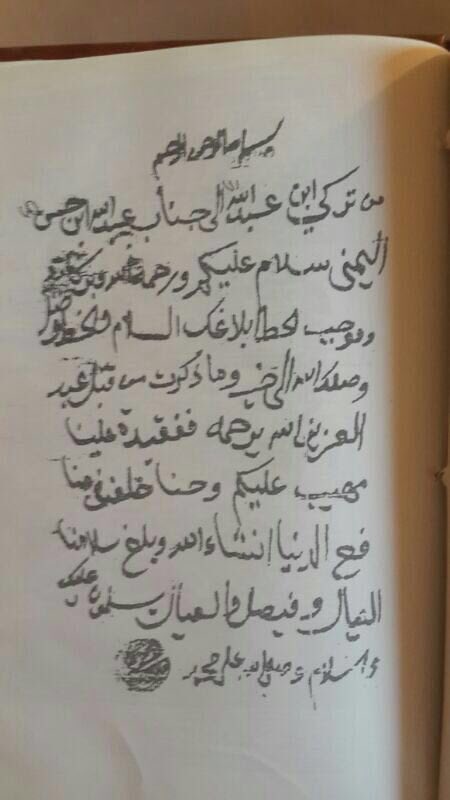 بسم الله الرحمن الرحيم
من تركي ابن عبدالله الى جناب عبدالله ابن حسن
اليمني سلام عليكم ورحمة الله وبركاته
وموجب لخط ابلاغك السلام والخط وصل
وصلك الله الى خير وما ذكرت من قبل عبد
العزيز الله يرحمه ففقيدة علينا
عليكم وحنا خلفن منا
في الدنيا انشاء الله وبلغ سلامنا
العيال و فيصل والعيال يسلمون عليك
والسلام وصلى الله على محمد